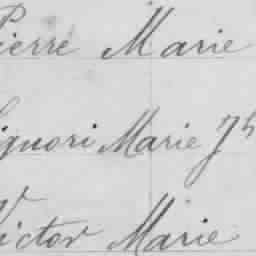 Pierre Marie
Liguori Marie Jh
Victor Marie